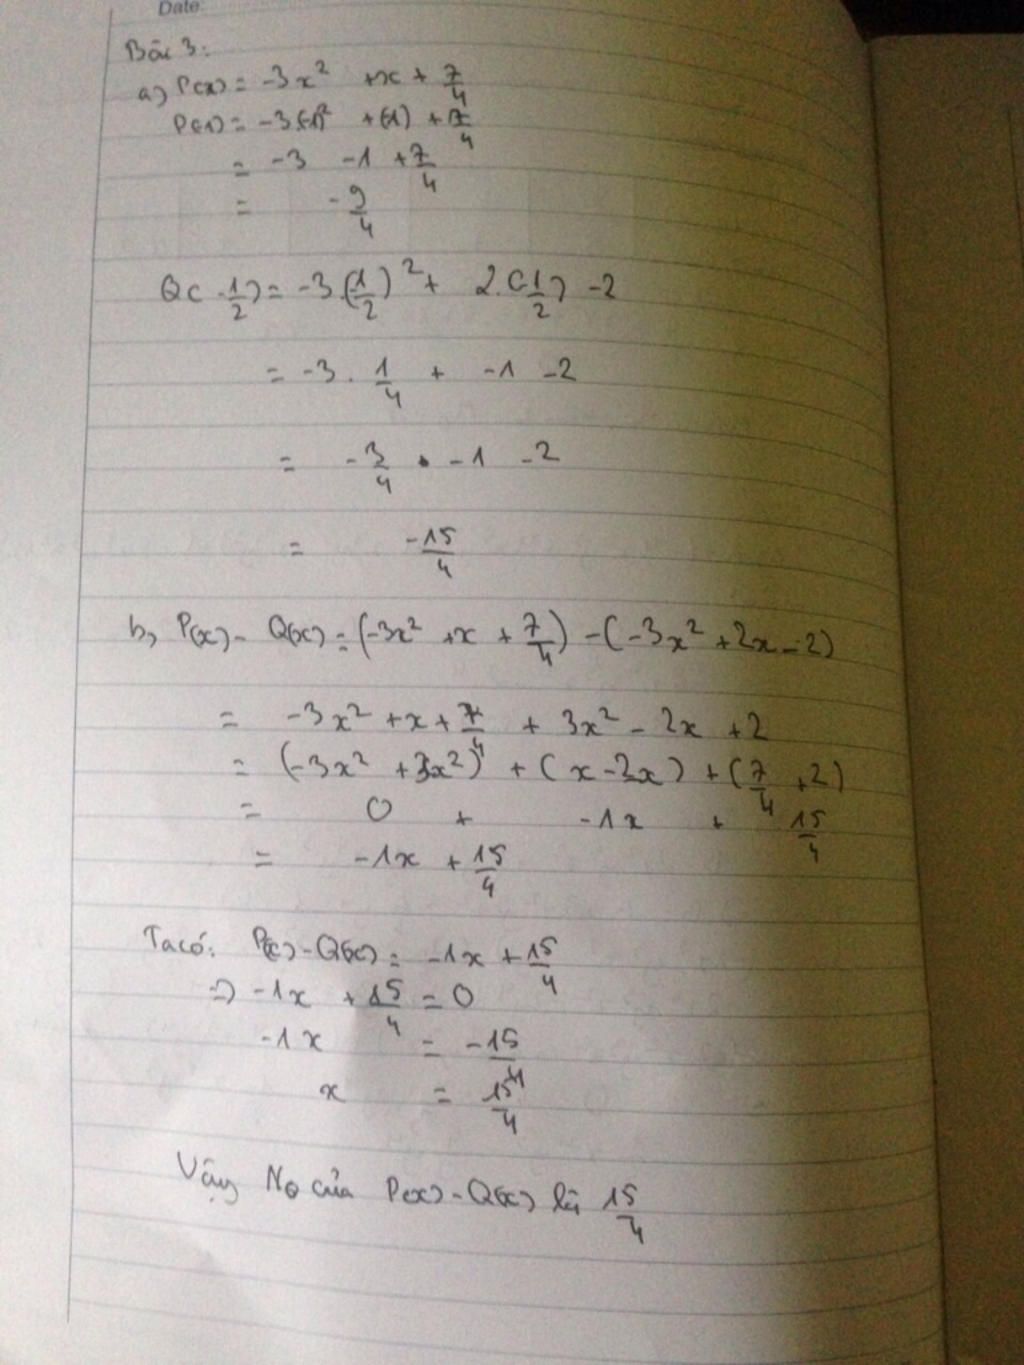 Date:
Bài 3:
a) P(x) = -3x² +x + 7/4
P(-1) = -3(-1)² + (-1) + 7/4
= -3 -1 + 7/4
= -9/4
Q(-1/2) = -3.(-1/2)² + 2.(-1/2) -2
= -3 . 1/4 + -1 -2
= -3/4 • -1 -2
= -15/4
b, P(x) - Q(x) = (-3x² +x + 7/4) - (-3x² +2x -2)
= -3x² +x + 7/4 + 3x² - 2x +2
= (-3x² +3x²) + (x -2x) + (7/4 +2)
= 0 + -1x + 15/4
= -1x + 15/4
Ta có: P(x) - Q(x) = -1x + 15/4
=> -1x + 15/4 = 0
-1x = -15/4
x = 15/4
Vậy No của P(x) - Q(x) là 15/4